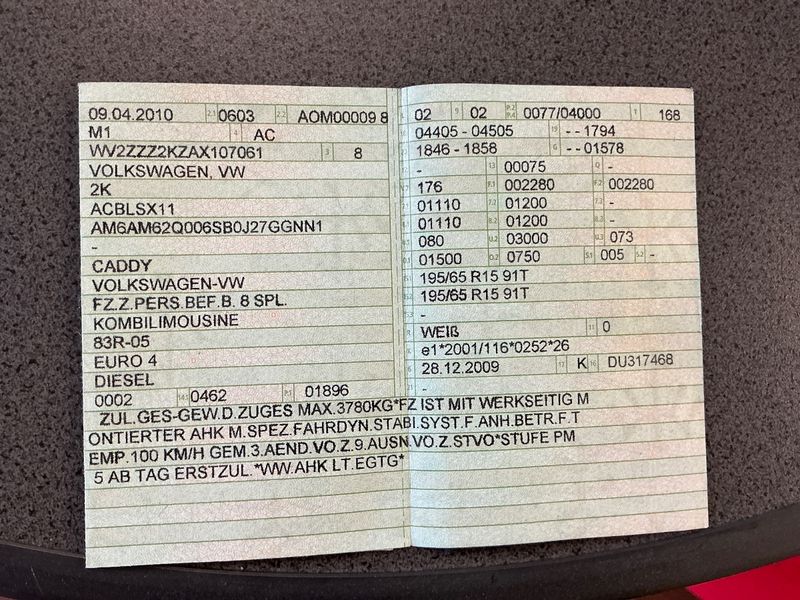 09.04.2010 2.1 0603 2.2 AOM00009 8
M1 4 AC
WV2ZZZ2KZAX107061 3 8
VOLKSWAGEN, VW
2K
ACBLSX11
AM6AM62Q006SB0J27GGNN1
-
CADDY
VOLKSWAGEN-VW
FZ.Z.PERS.BEF.B. 8 SPL.
KOMBILIMOUSINE
83R-05
EURO 4
DIESEL
0002 14.1 0462 P.1 01896
02 9 02 P.2 P.4 0077/04000 T 168
04405 - 04505 19 - - 1794
1846 - 1858 G - - 01578
- 13 00075 Q -
176 F.1 002280 F.2 002280
01110 7.2 01200 7.3 -
01110 8.2 01200 8.3 -
080 U.2 03000 U.3 073
01500 O.2 0750 S.1 005 S.2 -
195/65 R15 91T
195/65 R15 91T
-
R WEIß 11 0
K e1*2001/116*0252*26
6 28.12.2009 17 K 16 DU317468
21 -
ZUL.GES-GEW.D.ZUGES MAX.3780KG*FZ IST MIT WERKSEITIG M
ONTIERTER AHK M.SPEZ.FAHRDYN.STABI.SYST.F.ANH.BETR.F.T
EMP.100 KM/H GEM.3.AEND.VO.Z.9.AUSN.VO.Z.STVO*STUFE PM
5 AB TAG ERSTZUL.*WW.AHK LT.EGTG*